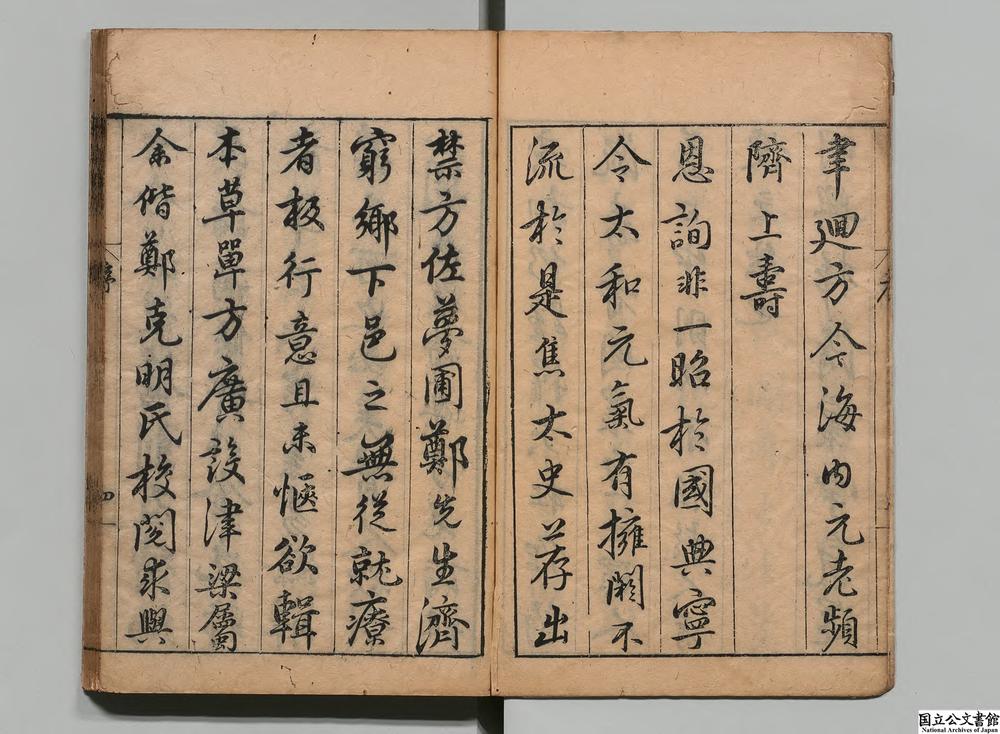 聿廻方今海內元老頻
隮上壽
恩詢非一昭於國典寧
令太和元氣有擁閼不
流於是焦太史荐出
禁方佐夢圃鄭先生濟
窮鄉下邑之無從就療
者板行意且未愜欲輯
本草單方廣設津梁屬
余偕鄭克明氏校閱求與
序
四
国立公文書館
National Archives of Japan